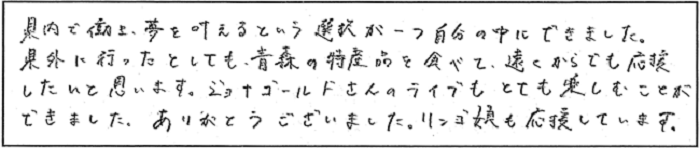 県内で働き、夢を叶えるという選択が一つ自分の中にできました。
県外に行ったとしても、青森の特産品を食べて、遠くからでも応援
したいと思います。ジョナゴールドさんのライブもとても楽しむことが
できました。ありがとうございました。リンゴ娘も応援しています。